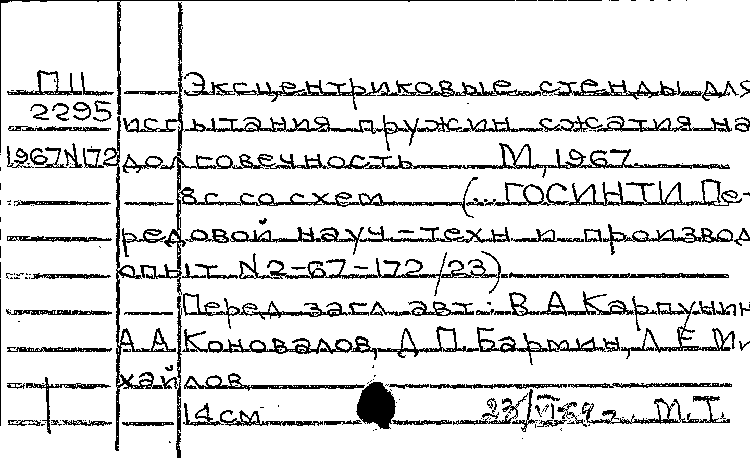 П11 Эксцентриковые стенды для
2295 испытания пружин сжатия на
1967N172 долговечность М, 1967
8с со схем (...ГОСИНТИ Пе-
редовой науч-техн и производ
опыт N2-67-172/23)
Перед загл авт: В А Карпунин
А А Коновалов, Д П Бармин, Л Е Ми
хайлов
14см 23/VI 69г. М.Т.